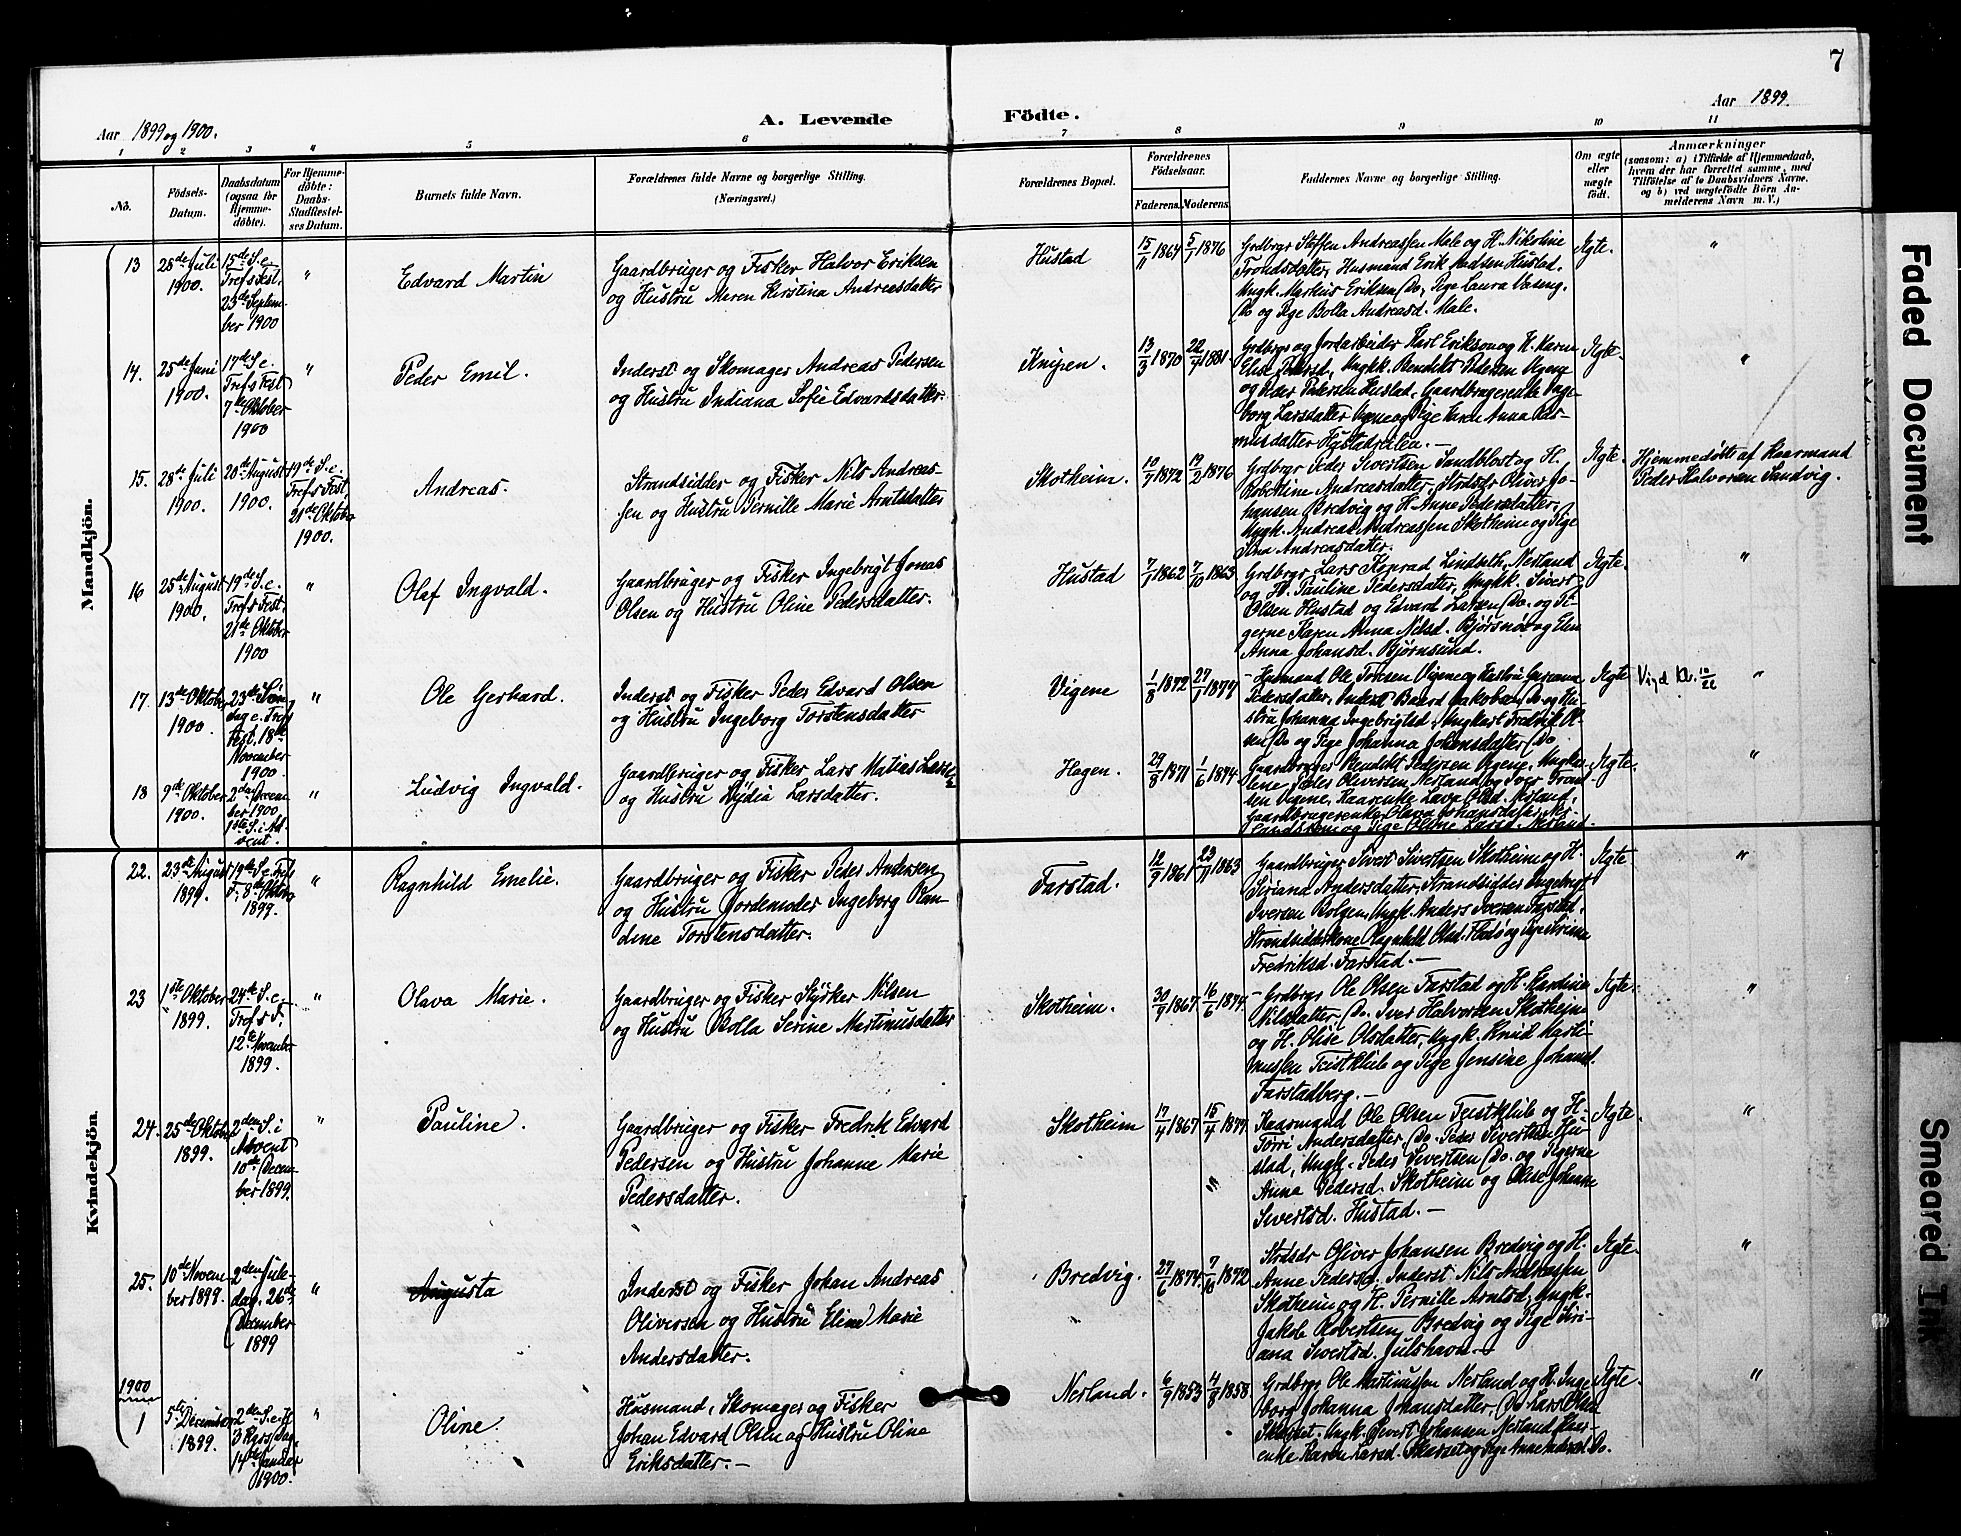 7
Aar 1899 og 1900.
A. Levende
Födte.
Aar 1899.
1 2 3 4 5 6 7 8 9 10 11
No.
Födsels-
Datum.
Daabsdatum
(ogsaa for
Hjemme-
døbte).
For Hjemme-
döbte:
Daabs-
Stadfæstel-
ses Datum.
Barnets fulde Navn.
Forældrenes fulde Navne og borgerlige Stilling.
(Næringsvei.)
Forældrenes Bopæl.
Forældrenes
Födselsaar.
Faderens. Moderens.
Faddernes Navne og borgerlige Stilling.
Om ægte
eller
uægte
født.
Anmærkninger
(saasom: a) i Tilfælde af Hjemmedaab,
hvem der har forrettet samme, med
Tilføielse af to Daabsvidners Navne,
og b) ved uægtefødte Börn An-
melderens Navn m. V.)
Mandkjön.
13
28de Juli
1900.
15de S. e.
Tref.s Fest.
23de Septem-
ber 1900
"
Edvard Martin
Gaardbruger og Fisker Halvor Eriksen
og Hustru Maren Kirstina Andreasdatter
Hustad
15/11 1864
5/1 1876
Grdbrgr Steffen Andreassen Male og H. Nikoline
Trondsdatter, Husmand Erik Hustad.
Ungk. Markus Eriksen Do, Pige Laura
Do og Pige Bolla Andreasd. Male.
Ægte.
"
14.
25de Juni
1900.
17de S. e.
Tref.s Fest
7de Oktober
1900
"
Peder Emil.
Inderst og Skomager Andreas Pedersen
og Hustru Indiana Sofie Edvardsdatter.
Knipen.
13/3 1870
22/7 1881
Grdbrgr og Jordarbeider Karl Erikson og H. Karen
Elise Pedersd, Ungkk. Bendikt Pedersen
og Peder Pedersen Hustad, Gaardbrugerenke Inge-
borg Larsdatter og Pige Karen Anna Ras-
musdatter Hustad
Ægte.
"
15.
28de Juli
1900.
20de August
1900.
19de S. e.
Tref.s Fest,
21de Oktober
1900.
Andreas.
Strandsidder og Fisker Nils Andreas-
sen og Hustru Pernille Marie Arntsdatter
Skotheim.
10/7 1872
19/2 1876
Grdbrgr Peder Sivertsen Sandblost og H.
Robertine Andreasdatter, Strdsdr Oliver Jo-
hansen Bredvig og H. Anne Pedersdatter,
Ungk. Andreas Andreassen Skotheim og Pige
Andreasdatter.
Ægte.
Hjemmedøbt af Kaarmand
Peder Halvorsen Sandvig.
16
25de August
1900.
19de S. e.
Tref.s Fest.
21de Oktober
1900
"
Olaf Ingvald.
Gaardbruger og Fisker Ingebrigt Jonas
Olsen og Hustru Oline Pedersdatter.
Hustad
7/1 1862
7/10 1863
Grdbrgr Lars Konrad Lindseth, Nerland
og H. Pauline Pedersdatter, Ungkk. Sivert
Olsen Hustad og Edvard Larsen Do. og Pi-
gerne Karen Anna Nilsd. og Elen
Anna Johansd. Bjørnsund.
Ægte.
"
17.
13de Oktober
1900
23de Søn-
dag e. Tref.s
fest. 18de
November
1900.
"
Ole Gerhard.
Inderst og Fisker Peder Edvard Olsen
og Hustru Ingeborg Torstensdatter
Vigene
1/8 1872
27/1 1877
Husmand Ole Toresen Vigene og Hustru
Pedersdatter, Inderst Baard Jakobsen Do og Hu-
stru Johanna Ingebrigtsd., Ungkarl Fredrik Ol-
sen Do og Pige Johanna Johansdatter Do
Ægte
"
18
9de Oktober
1900.
2den Decem-
ber 1900
1ste S. i Ad-
vent.
"
Ludvig Ingvald.
Gaardbruger og Fisker Lars Matias Larsen
og Hustru Nydia Larsdatter.
Hagen.
29/8 1871
1/6 1874
Gaardbruger Bendikt Pedersen Vigene, Ungka-
lene Peder Oliversen Nerland og Iver Trond-
sen Vigene, Kaarenke Lava Olsd. Nerland,
Gaardbrugerenke Olava Johansdatter
og Pige Oline Larsd. Nerland.
Ægte.
"
Kvindekjön.
22.
23de August
1899.
19de S. e. Tref.s
F., 8de Oktober
1899.
"
Ragnhild Emelie.
Gaardbruger og Fisker Peder Andersen
og Hustru Jordemoder Ingeborg Ran-
dine Torstensdatter.
Farstad.
12/9 1861
23/11 1863
Gaardbruger Sivert Sivertsen Skotheim og H.
Siriana Andersdatter, Strandsidder Ingebrigt
Iversen Bolgen, Ungk. Anders Iversen Farstad,
Strandsidderkone Ragnhild Olsd. og Pige
Fredriksd. Farstad.—
Ægte
"
23
1ste Oktober
1899.
24de S. e.
Tref.s F.
12te November
1899.
"
Olava Marie.
Gaardbruger og Fisker Styrker Nilsen
og Hustru Bolla Serine Martinusdatter
Skotheim.
30/9 1867
16/6 1874
Grdbrgr Ole Olsen Farstad og H. Hardine
Nilsdatter, Do. Iver Halvorsen Skotheim
og H. Olise Olsdatter, Ungk. Knud Marti-
nussen Teistklub og Pige Jensine Johansd.
Farstadberg.—
Ægte.
"
24.
25de Oktober
1899.
2den S. i
Advent
10de Decem-
ber 1899.
"
Pauline.
Gaardbruger og Fisker Fredrik Edvard
Pedersen og Hustru Johanne Marie
Pedersdatter.
Skotheim
17/4 1867
15/4 1877
"
Kaarmand Ole Olsen Teistklub og H.
Torri Andersdatter, Do. Peder Sivertsen Hu-
stad, Ungk. Peder Sivertsen Do. og Pigerne
Anna Pedersd. Skotheim og Olise Johanne
Sivertsd. Hustad.—
Ægte.
"
25.
10de Novem-
ber 1899.
2den Jule-
dag. 26de
December
1899
"
Augusta
Inderst og Fisker Johan Andreas
Oliversen og Hustru Eline Marie
Andersdatter.
Bredvig.
27/6 1874.
7/10 1872
Strdsdr Oliver Johansen Bredvig og H.
Anne Pedersd., Inderst Nils Andreassen
Skotheim og H. Pernille Arntsd., Ungk.
Jakob Robertsen, Bredvig og Pige Siri-
ana Sivertsd. Julshavn.—
Ægte.
"
1900
1
5te December
1899.
2den S. e. H.
3 Kgrs. Dag.
14de Januar
1900.
"
Oline.
Husmand, Skomager og Fisker
Johan Edvard Olsen og Hustru Oline
Eriksdatter.—
Nerland.
6/9 1853
4/8 1858
Grdbrgr Ole Martinussen Nerland og H. Inge-
borg Johanna Johansdatter, Do Lars Olsen
Skarset, Ungk. Sivert Johansen Nerland, Kaar-
enke Karen Larsd. Skarset og Pige Anne Do.
Ægte.
"
Faded Document
Smeared Ink